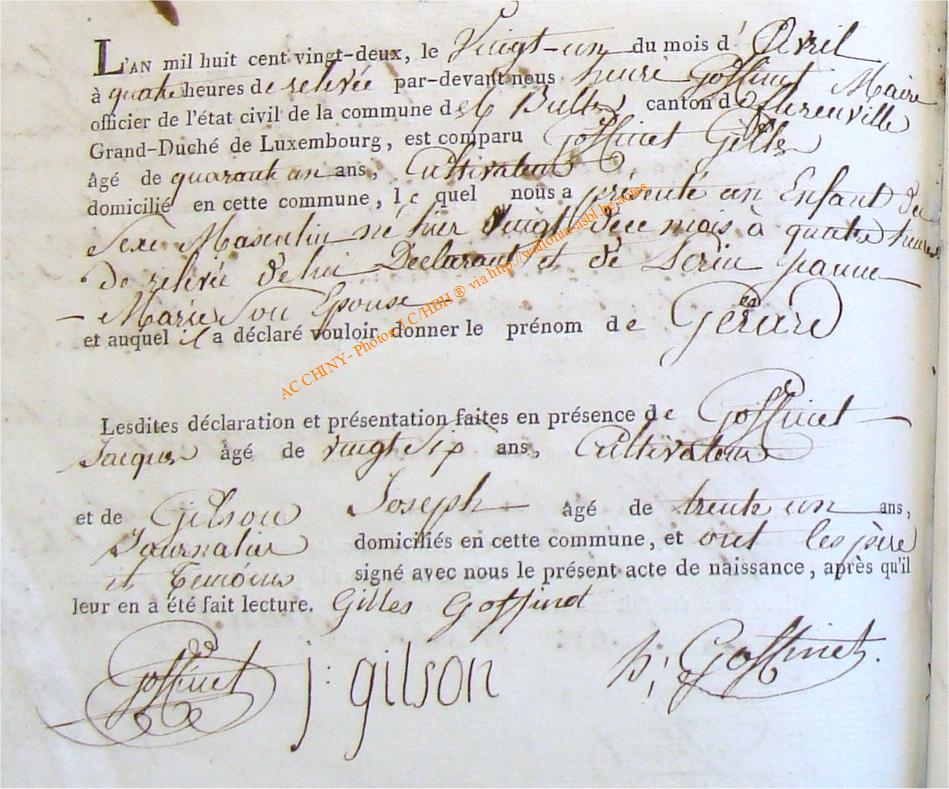 L'AN mil huit cent vingt-deux, le Vingt-un du mois d' Avril
à quatre heures de relevée par-devant nous henri Goffinet Maire
officier de l'état civil de la commune de canton d'
Grand-Duché de Luxembourg, est comparu Goffinet Gilles
âgé de quarante un ans, Cultivateur
domicilié en cette commune, le quel nous a présenté un Enfant du
Sexe Masculin né hier vingt dece mois à quatre heures
de relevée de lui Declarant et de
Marie Son Epouse
et auquel il a déclaré vouloir donner le prénom de Gérard
Lesdites déclaration et présentation faites en présence de Goffinet
Jacques âgé de vingt six ans, Cultivateur
et de Gilson Joseph âgé de trente un ans,
Journalier domiciliés en cette commune, et ont les père
et Temoins signé avec nous le présent acte de naissance, après qu'il
leur en a été fait lecture. Gilles Goffinet
Goffinet j: gilson h; Goffinet.
AC CHINY - Photos JC/HBH ® via http://wallonia-asbl.be/actes